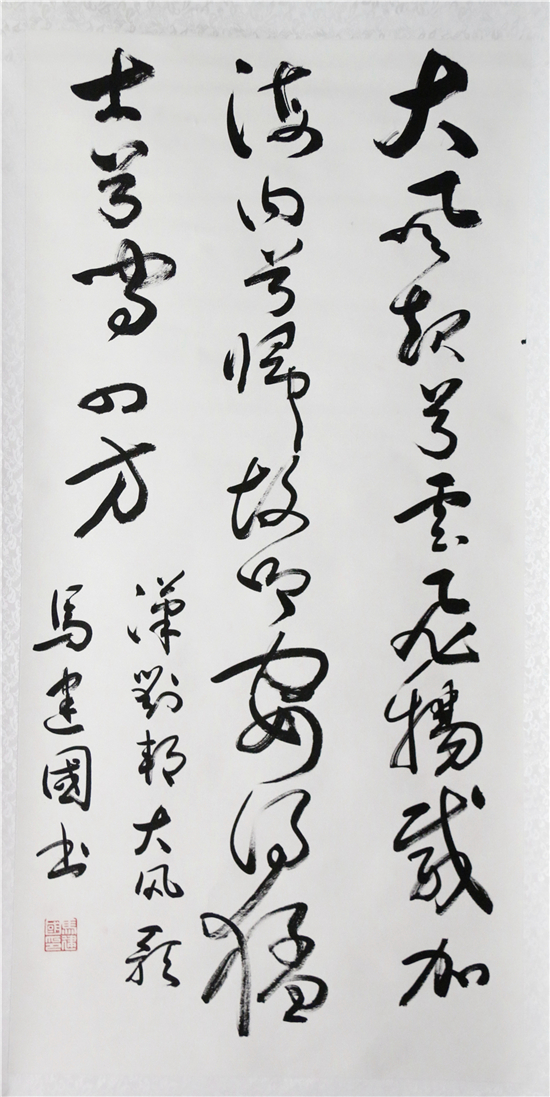 大風起兮雲飛揚威加
海内兮歸故鄉安得猛
士兮守四方
漢劉邦大風歌
馬建國書